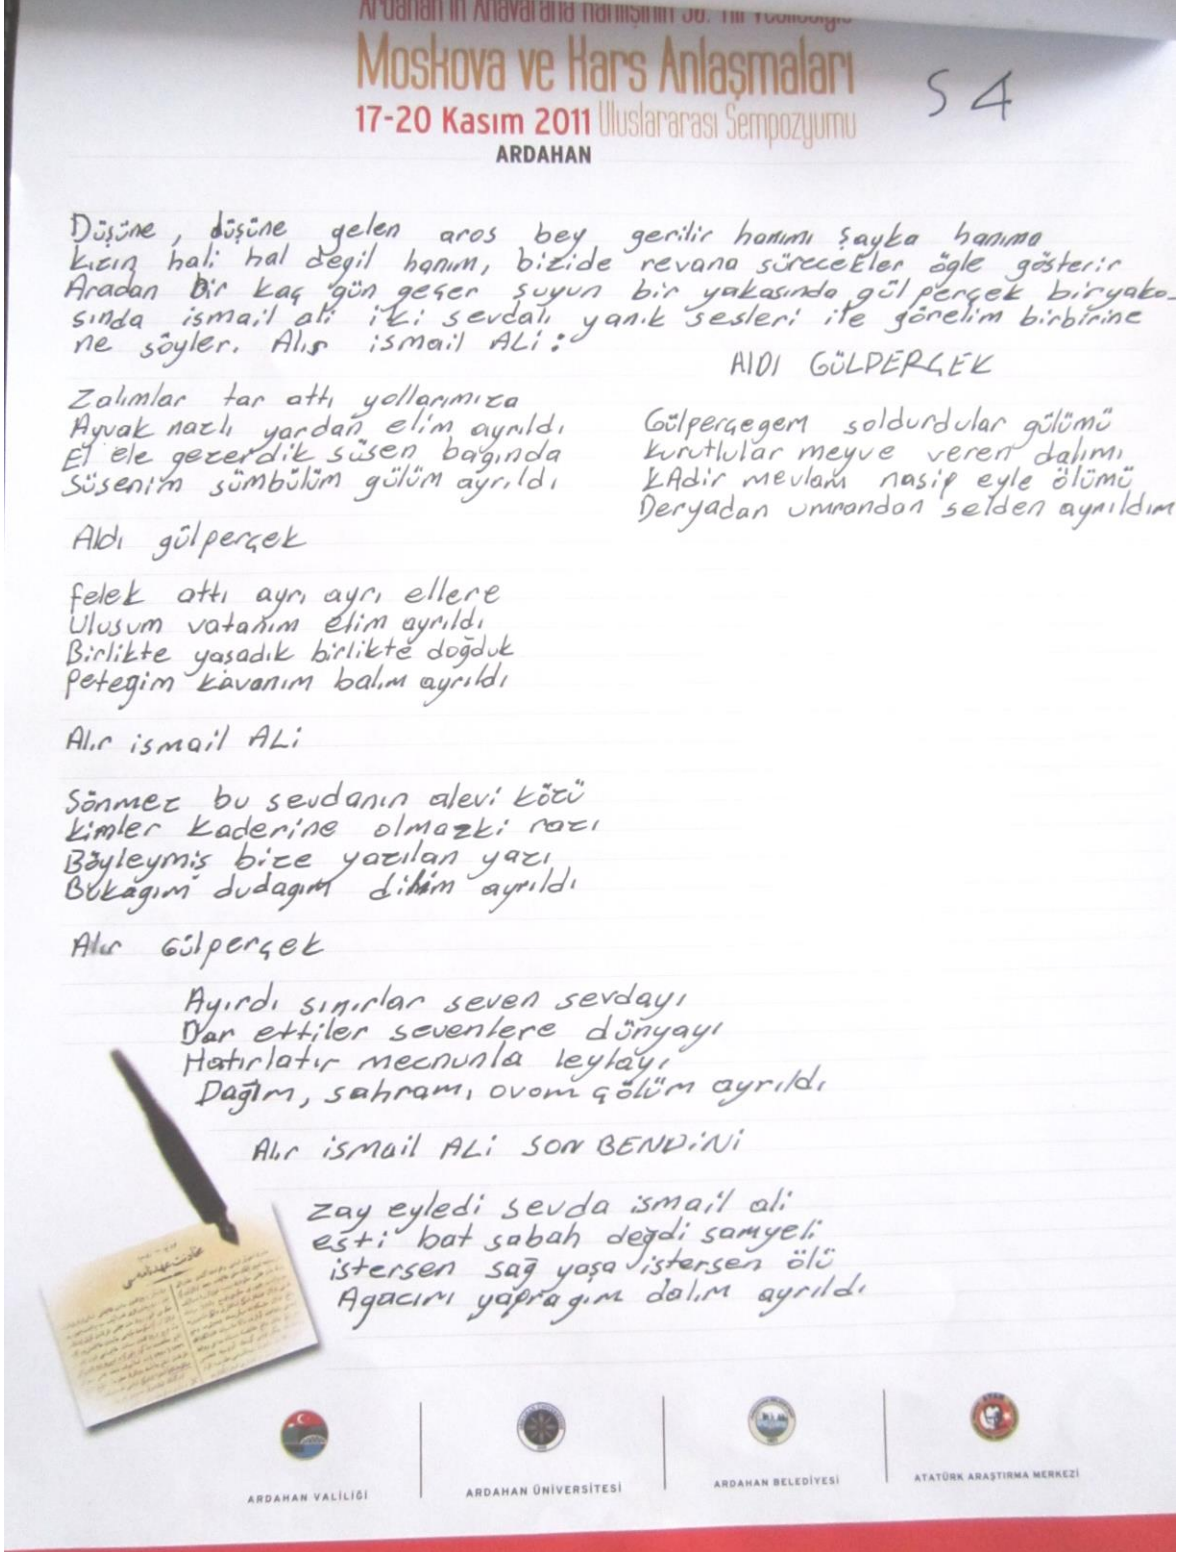 Ardahan'ın Anavatana Katılışının 90. Yılı
Moskova ve Kars Anlaşmaları
17-20 Kasım 2011 Uluslararası Sempozyumu
ARDAHAN
S 4
Düşüne, düşüne gelen aros bey gerilir hanımı şayka hanıma
kızın hali hal degil hanım, bizide revana sürecekler ögle gösterir
Aradan Bir kaç gün geçer suyun bir yakasında gül perçek biryaka-
sında ismail ali iki sevdalı yanık sesleri ile görelim birbirine
ne söyler. Alır ismail ALi:
Zalımlar tar attı yollarımıza
Ayvak nazlı yardan elim ayrıldı
El ele gezerdik süsen bagında
Süsenim sümbülüm gülüm ayrıldı
Aldı gülperçek
felek attı ayrı ayrı ellere
Ulusum vatanım elim ayrıldı
Birlikte yaşadık birlikte doğduk
Petegim kavanım balım ayrıldı
Alır ismail ALi
Sönmez bu sevdanın alevi közü
kimler kaderine olmazki razı
Böyleymiş bize yazılan yazı
Bukagım dudagım dilim ayrıldı
Alır Gülperçek
Ayırdı sınırlar seven sevdayı
Dar ettiler sevenlere dünyayı
Hatırlatır mecnunla leylayı
Dağım, sahram, ovam çölüm ayrıldı
Alır ismail ALi SON BENDiNi
zay eyledi sevda ismail ali
esti bat sabah değdi samyeli
istersen sağ yaşa istersen ölü
Agacım yapragım dalım ayrıldı
AlDI GÜLPERÇEK
Gülperçegem soldurdular gülümü
kuruttular meyve veren dalımı
kAdir mevlam nasip eyle ölümü
Deryadan ummandan selden ayrıldım
ARDAHAN VALİLİĞİ
ARDAHAN ÜNİVERSİTESİ
ARDAHAN BELEDİYESİ
ATATÜRK ARAŞTIRMA MERKEZİ